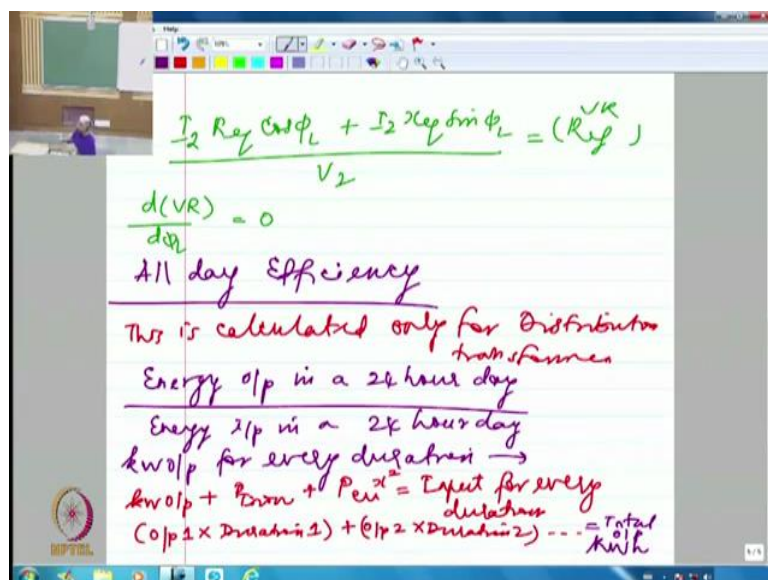 Help
I2 Req CosφL + I2 xeq Sinφ L = (Reg VR)
V2
d(VR) = 0
dφL
All day Efficiency
This is calculated only for Distribution
transformer
Energy o/p in a 24 hour day
Energy i/p in a 24 hour day
kw o/p for every duration →
kw o/p + Piron + Pcu x² = Input for every
duration
(o/p 1 x Duration 1) + (o/p 2 x Duration 2) --- = Total
o/p
kwh
NPTEL
5/5